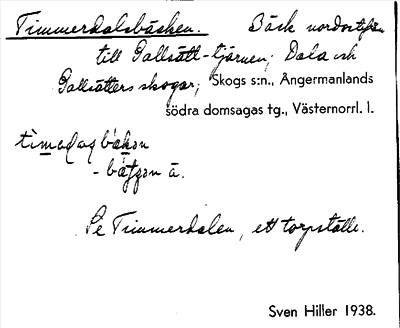 Timmerdalsbäcken. Bäck nordost från
till Gallsätt-tjärnen; Dala och
Gallsätters skogar; Skogs s:n., Ångermanlands
södra domsagas tg., Västernorrl. l.
Se Timmerdalen, ett torpställe.
Sven Hiller 1938.